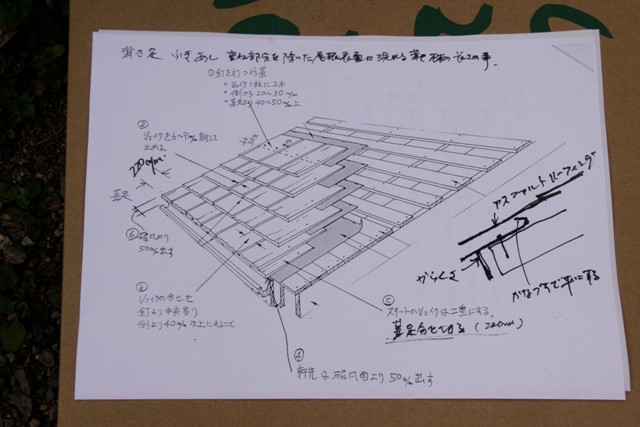 葺き足 ふきあし 重ね部分を除いた屋根表面に現れる葺材の長さの事。
①釘を打つ位置
・シェイク1枚に2本
・側から20〜30m/m
・葺足より40〜50m/m上
②
シェイクを6〜9m/m離して
止める。
220m/m
葺足
⑥破風より
50m/m出す
③
シェイクの合せを
釘より中央寄り
側より40m/m以上にすること
④
軒先は破風面より50m/m出す
⑤
スタートのシェイクは二重にする。
葺足分とする (220mm)
アスファルトルーフィング
からくさ
かなづちで平にする